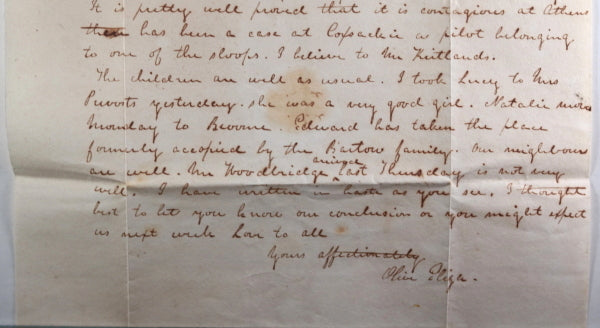 It is pretty well proved that it is contagious at Athens
there has been a case at Coxsackie a pilot belonging
to one of the sloops. I believe to Mr Kirtlands.
The children are well as usual. I took Lucy to Mrs
Prevosts yesterday. she was a very good girl. Natalie moves
Monday to Browne. Edward has taken the place
formerly accopied by the Bartow family. Our neighbour
are well. Mr Woodbridge arrived last Thursday is not very
well. I have written in haste as you see. I thought
best to let you know our conclusion or you might expect
us next week Love to all
Yours affectionately
Olive Eliza.